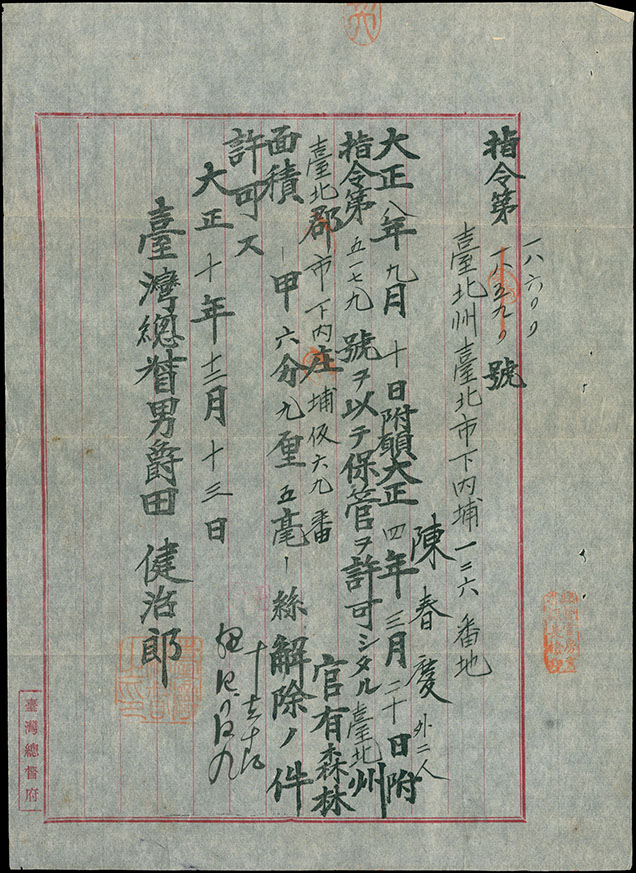 指令第一八五九〃號
一八六〇〃
臺北州臺北市下内埔一三六番地
陳春慶外二人
大正八年九月十日附願大正四年三月二十日附
指令第五一七九號ヲ以テ保管ヲ許可シタル臺北州
臺北郡市下内庄埔仮六九番官有森林
面積一甲六分九厘五毫一絲解除ノ件
許可ス
大正十年十二月十三日
臺灣總督男爵田健治郎
臺灣總督府